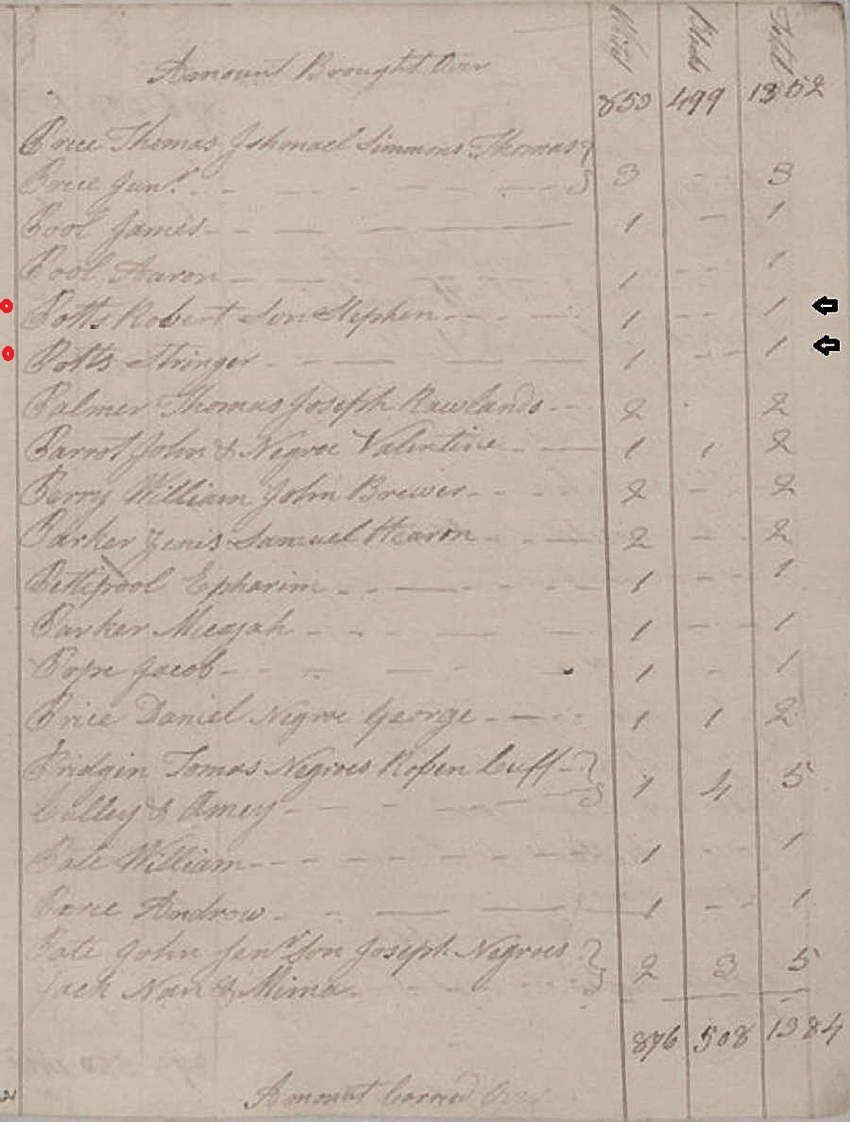 White Black Total
Amount Brought Over
853 499 1352
Price Thomas Ishmael Simmons Thomas
Price Junr. 3 - 3
Pool James 1 - 1
Pool Aaron 1 - 1
Potts Robert Son Stephen 1 - 1
Potts Stringer 1 - 1
Palmer Thomas Joseph Rawlands 2 - 2
Parrot John & Negroe Valentine 1 1 2
Perry William John Brewer 2 - 2
Parker Jenis Samuel Hearon 2 - 2
Pettipool Epharim 1 - 1
Parker Micajah 1 - 1
Pope Jacob 1 - 1
Price Daniel Negroe George 1 1 2
Pridgin Tomas Negroes Cuff
& Amey 1 4 5
Pate William 1 - 1
Androw 1 - 1
Pate John Senr Son Joseph Negroes
Jack Nan & Mima 2 3 5
876 508 1384
Amount Carried Over